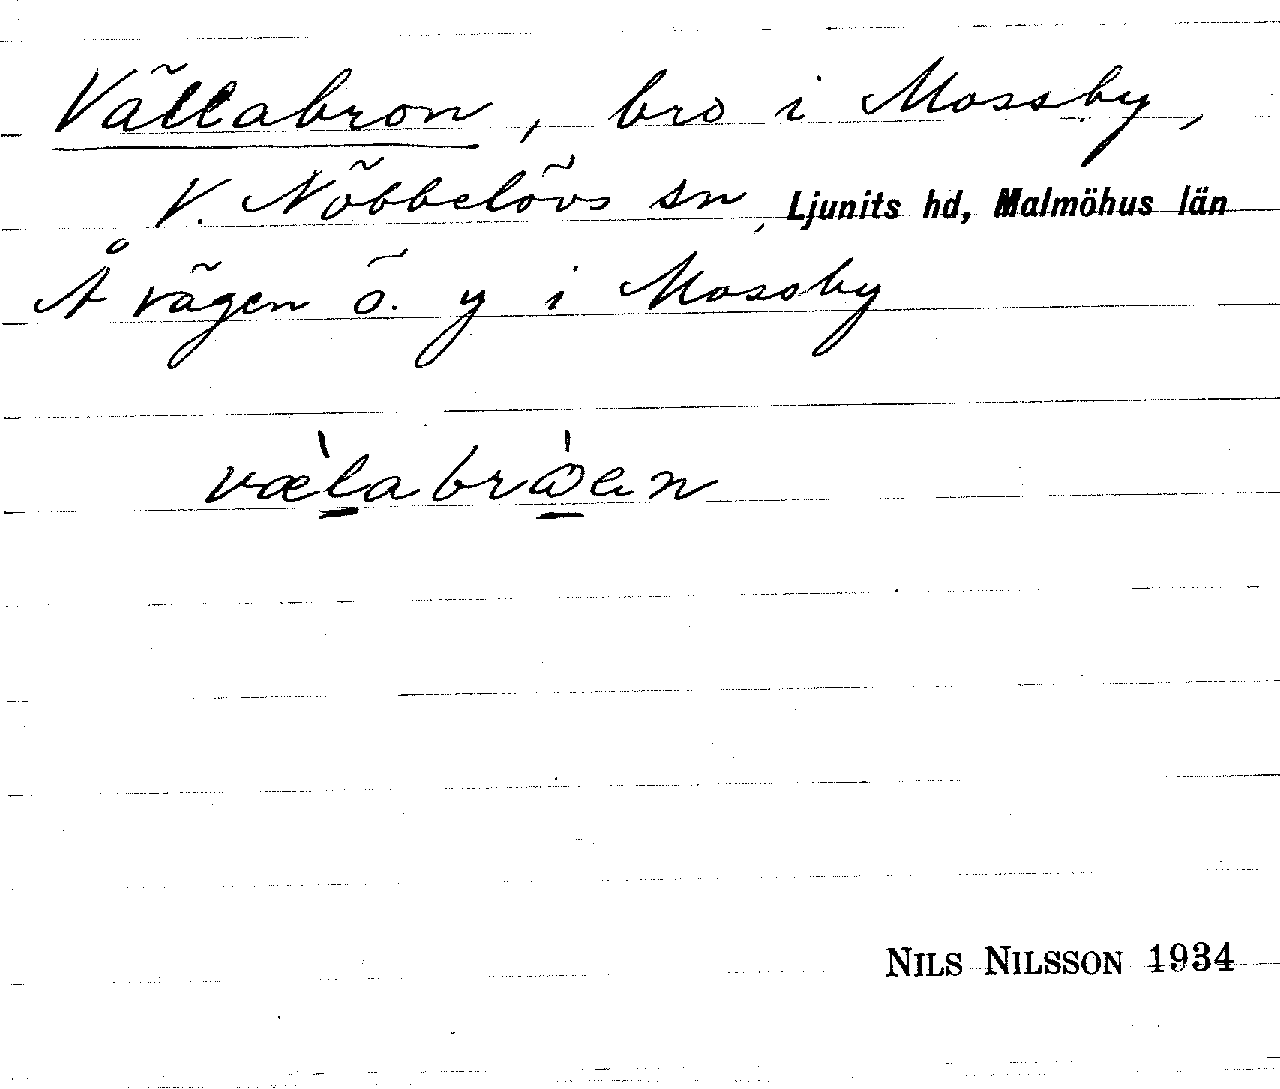 Vällabron, bro i Mossby,
V. Nöbbelövs sn, Ljunits hd, Malmöhus län
Å vägen ö. y i Mossby
væ̀labrò̤en
NILS NILSSON 1934